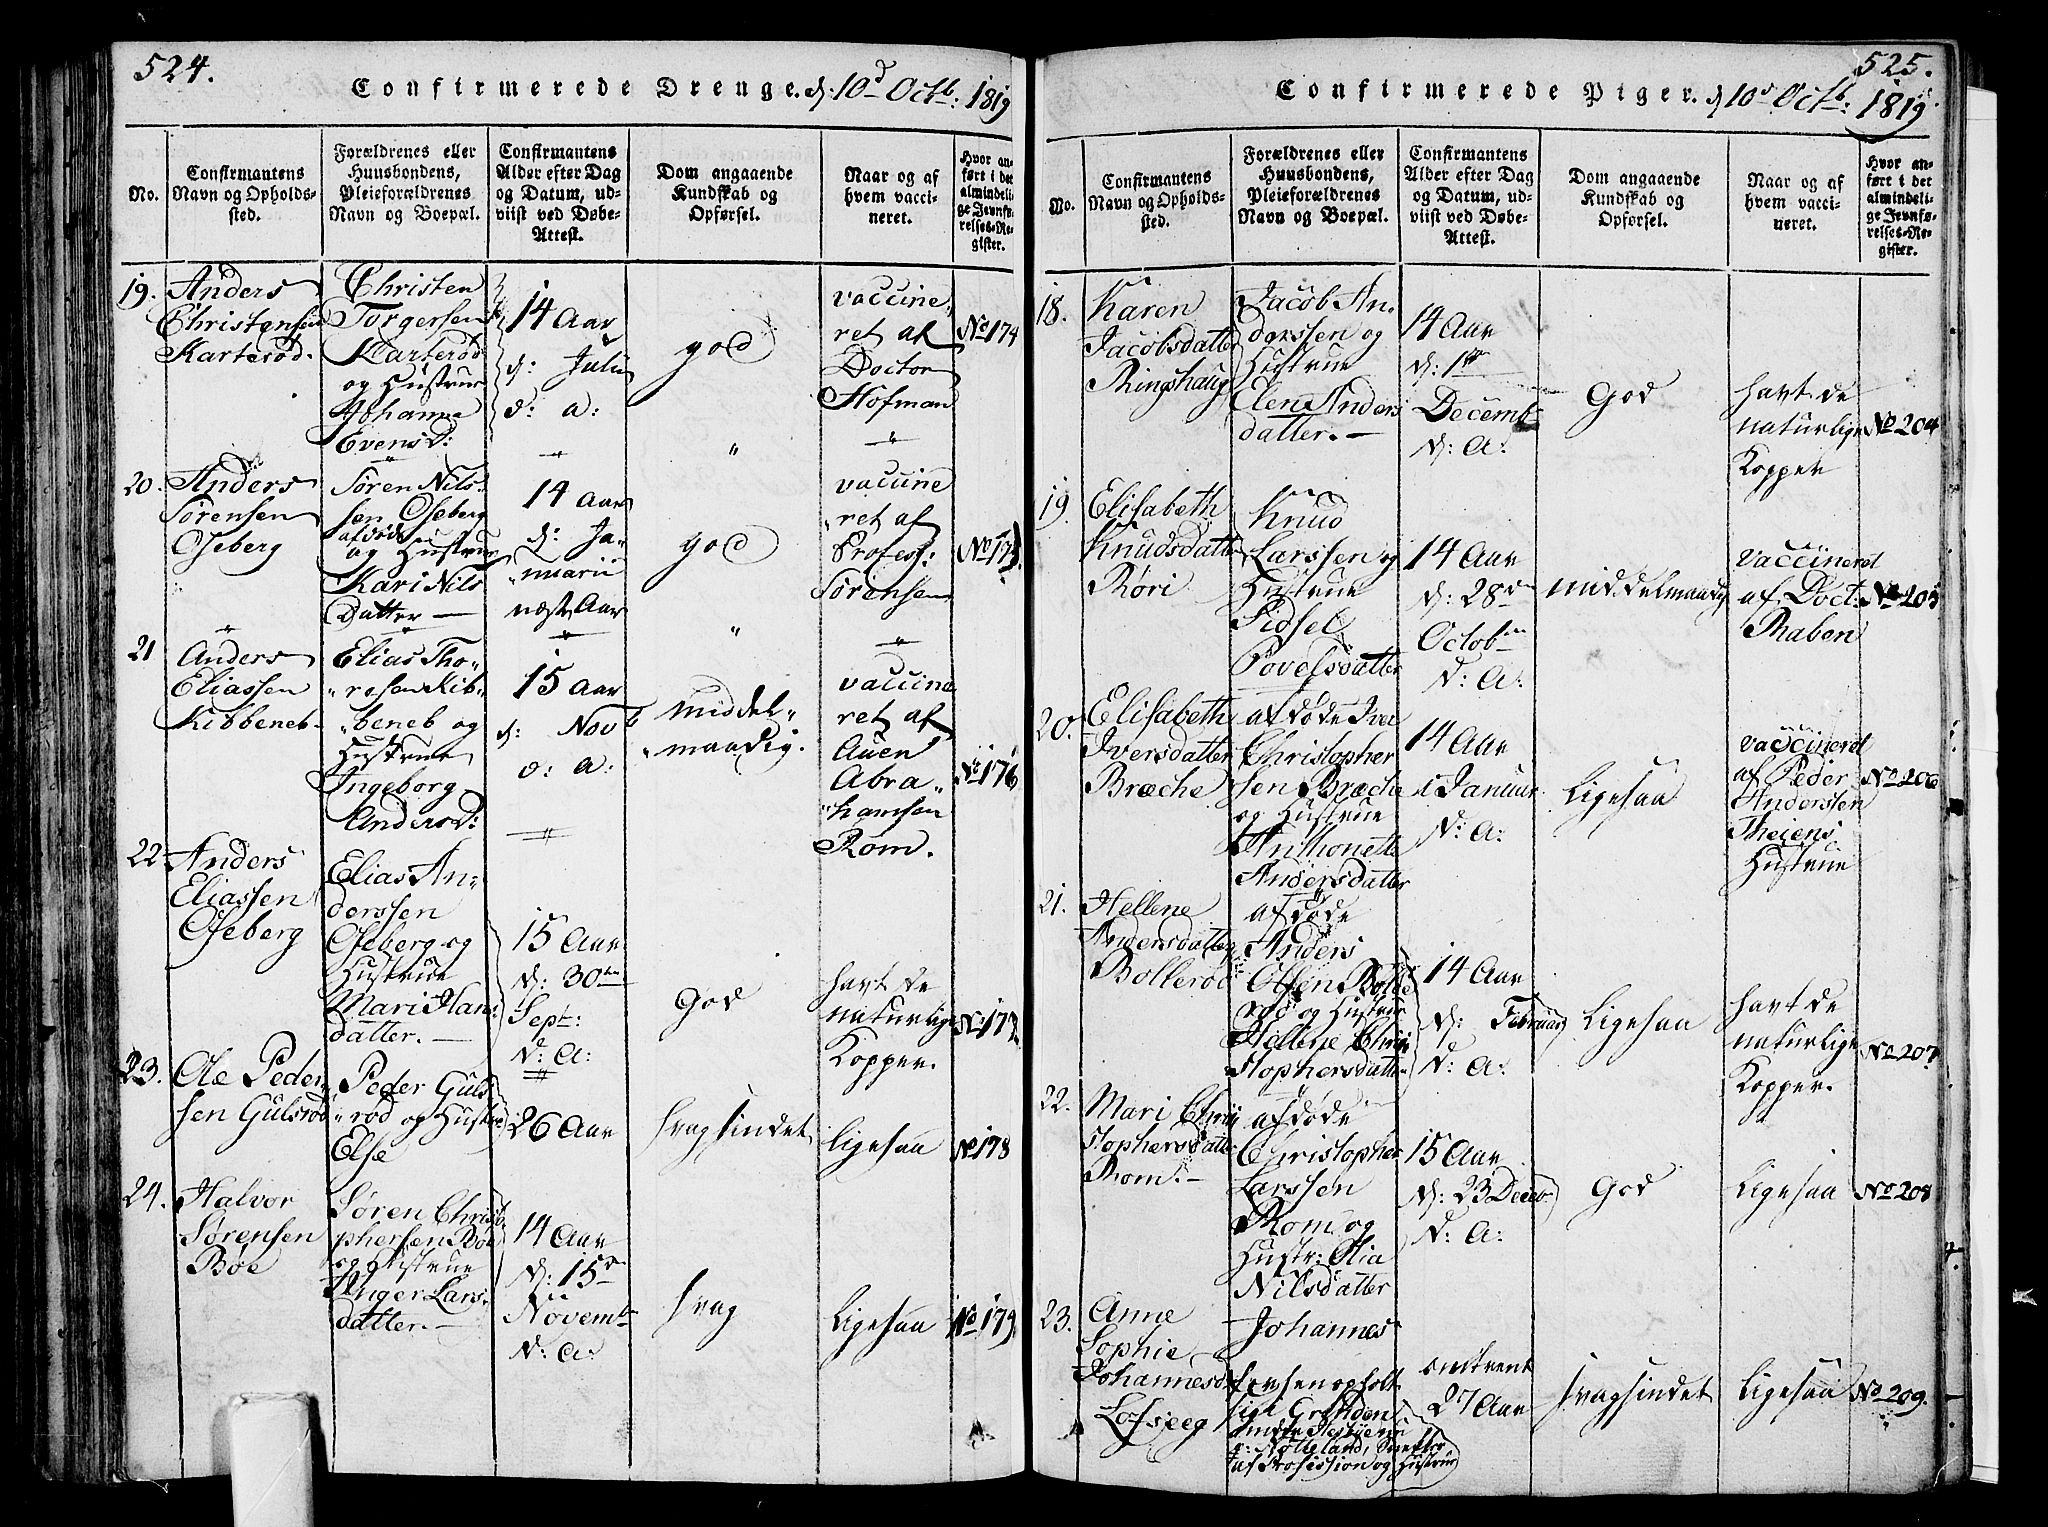 524.
Confirmerede Drenge. d: 10d Octb: 1819
No.
Confirmantens
Navn og Opholds-
sted.
Forældrenes eller
Huusbondens,
Pleieforældrenes
Navn og Boepæl.
Confirmantens
Alder efter Dag
og Datum, ud-
viist ved Døbe-
Attest.
Dom angaaende
Kundskab og
Opførsel.
Naar og af
hvem vacci-
neret.
Hvor an-
ført i det
almindeli-
ge Jevnfø-
relses-Re-
gister.
19.
Anders
Christensen
Karterød.
Christen
Torgersen
Karterød
og Hustrue
Johanna
Evensd:
14 Aar
d: Julii
d: a:
god
vaccine
ret af
Doctor
Hofman
No 174
20.
Anders
Sørensen
Oseberg
Søren Nils
sen Oseberg
afdøde
og Hustrue
Kari Nils
Datter —
14 Aar
d: Ja-
nuarii
næst Aar
god
vaccine
ret af
Profess:
Sørensen
No 175
21
Anders
Eliassen
Kibbeneb-
Elias Tho-
resen Kib-
beneb og
Hustrue
Ingeborg
Andersd:
15 Aar
d: Novb
d: a:
middel-
maadig.
vaccine
ret af
Auen
Abra-
hamsen
Rom.
No 176
22
Anders
Eliassen
Oseberg
Elias An-
derssen
Oseberg og
Hustrue
Mari Hans
datter. —
15 Aar
d: 30te
Sept:
d: A:
God
havt de
naturlige
Kopper.
No 177
23.
Ole Peder
sen Gulsrød
Peder Guls
rød og Hustrue
Else
26 Aar
svagsindet
ligesaa
No 178
24.
Halvor
Sørensen
Bøe
Søren Christo
phersen Bøe
og Hustrue
Inger Lars
datter. —
14 Aar
d: 15de
Novemb
d: A:
svag
ligesaa
No 179
525.
Confirmerede Piger. d 10d Octb: 1819.
No.
Confirmantens
Navn og Opholds-
sted.
Forældrenes eller
Huusbondens,
Pleieforældrenes
Navn og Boepæl.
Confirmantens
Alder efter Dag
og Datum, ud-
viist ved Døbe-
Attest.
Dom angaaende
Kundskab og
Opførsel.
Naar og af
hvem vacci-
neret.
Hvor an-
ført i det
almindeli-
ge Jevnfø-
relses-Re-
gister.
18.
Karen
Jacobsdatter
Ringshaug
Jacob An-
derssen og
Hustrue
Elen Anders
datter. —
14 Aar
d: 1te
Decemb
d: A:
God
havt de
naturlige
Kopper
No 204
19.
Elisabeth
Knudsdatter
Røri
Knud
Larssen og
Hustrue
Sidsel
Povelsdatter
14 Aar
d: 28de
Octob
d: A:
middelmaadig
vaccineret
af Doct:
Raben
No 205
20.
Elisabeth
Iversdatter
Bræche
afdøde Iver
Christopher
sen Bræche
og Hustrue
Anthonette
Andersdatter
14 Aar
i Januar
d: A:
Ligesaa
vaccineret
af Peder
Anderssen
Theiens
Hustrue
No 206
21.
Hellene
Andersdatter
Bollerød
afdøde
Anders
Olsen Bolle
rød og Hustrue
Hellene Chri
stophersdatter
14 Aar
d: Februar
d: A:
Ligesaa
havt de
naturlige
Kopper.
No 207
22.
Mari Chri
stophersdatter
Rom. —
afdøde
Christopher
Larssen
Rom og
Hustr: Olia
Nilsdatter
15 Aar
d: 23 Decb
d: A:
God
Ligesaa
No 208
23.
Anne
Sophie
Johannesd
Lofseeg
Johannes
Iversen opholt
omtrent
27 Aar
svagsindet
Ligesaa
No 209.
af Profession og Hustrue